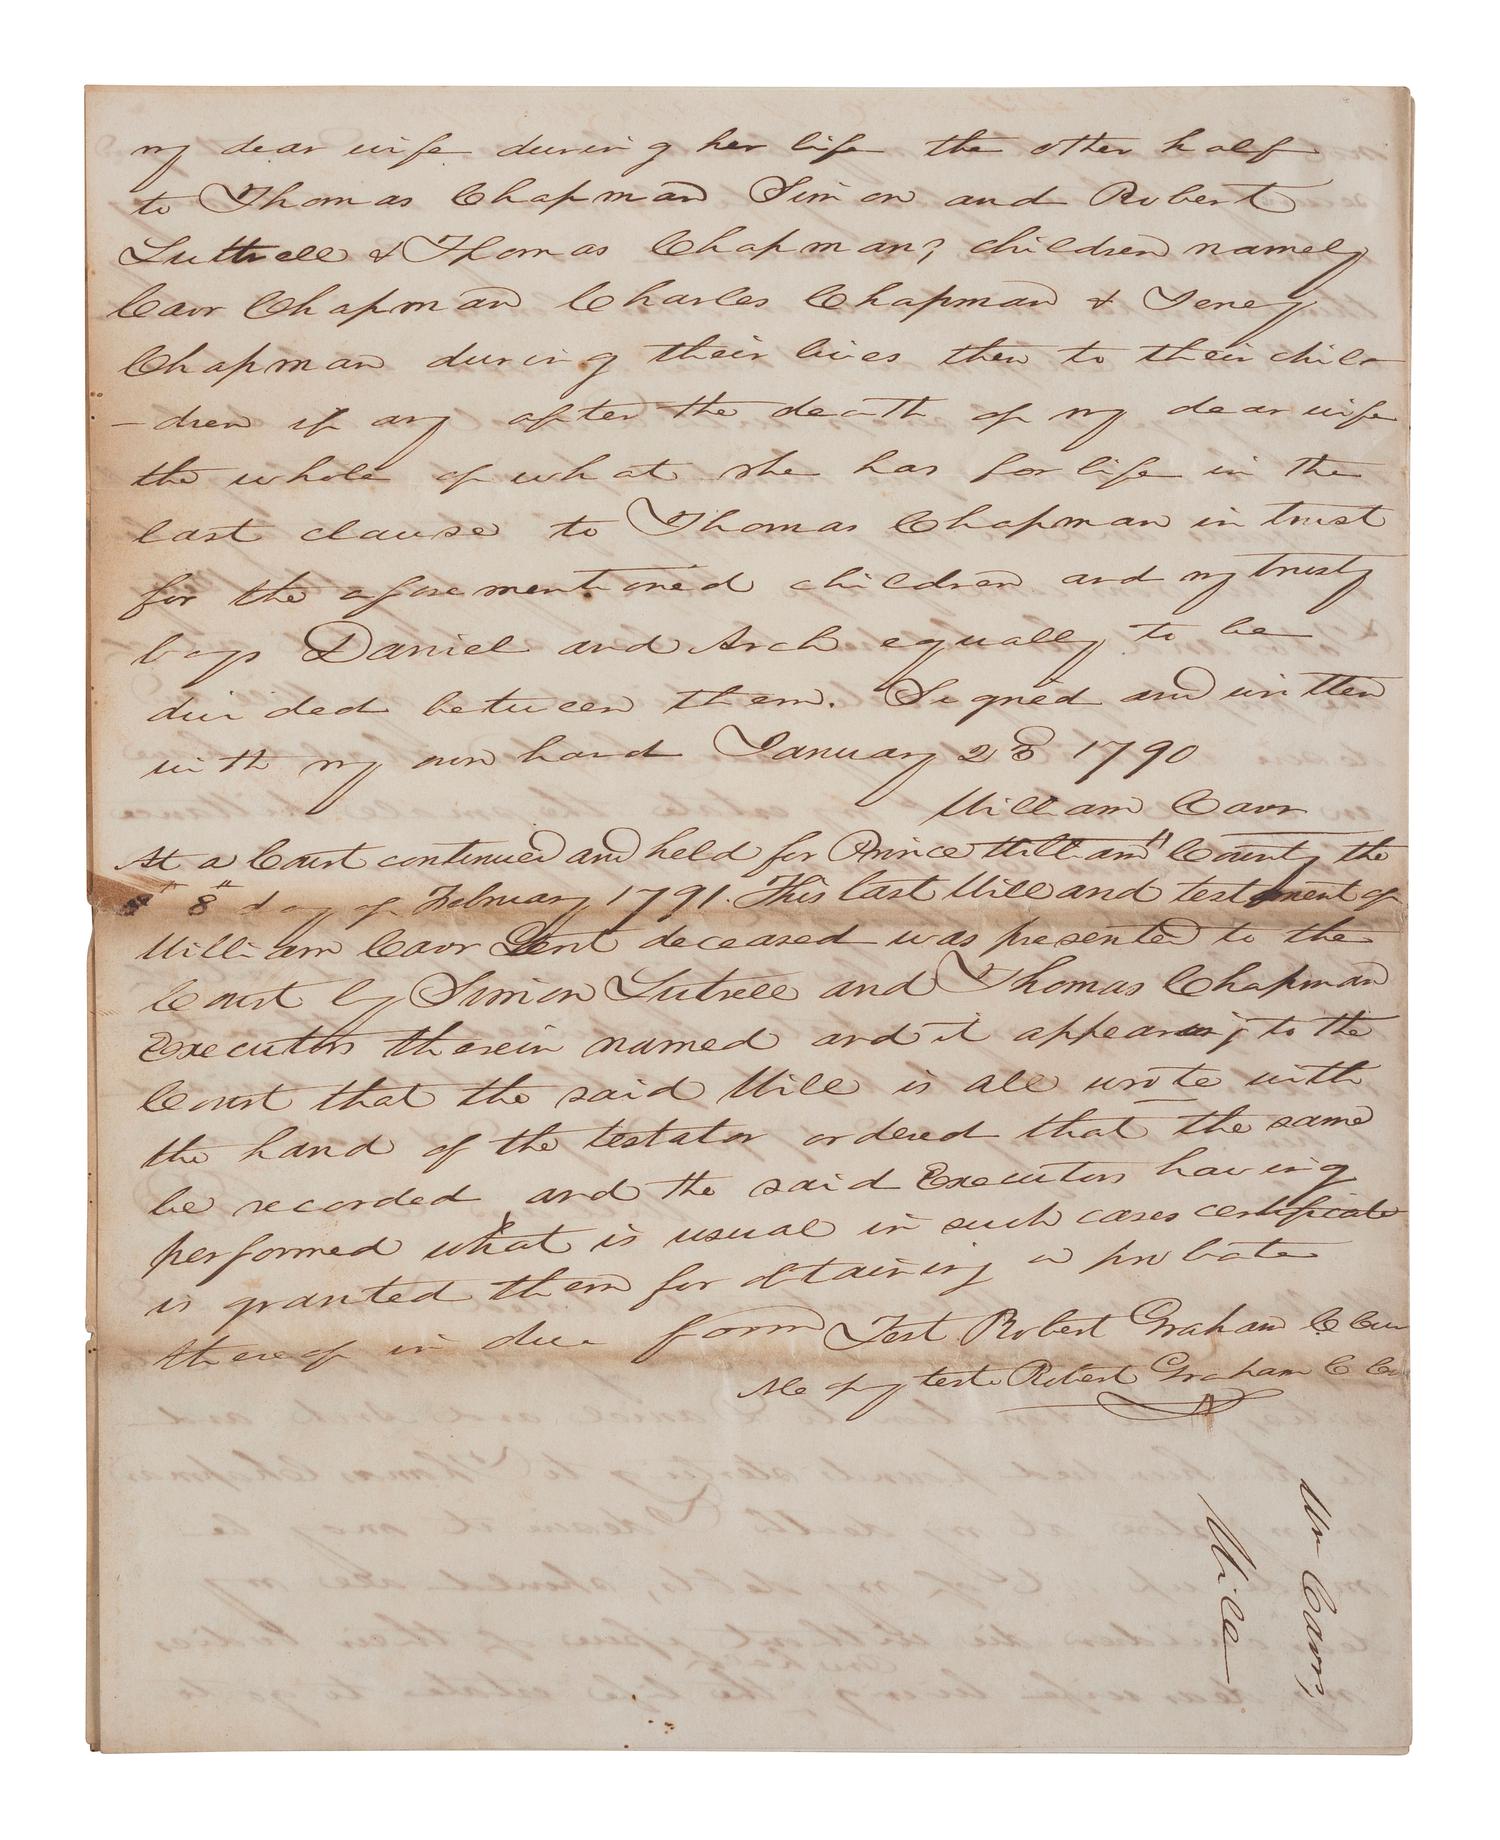 my dear wife during her life the other half
to Thomas Chapman Simon and Robert
Luttrell & Thomas Chapman, children namely
Carr Chapman Charles Chapman & Jeney
Chapman during their lives then to their chil-
-dren if any after the death of my dear wife
the whole of what she has for life in the
last clause to Thomas Chapman in trust
for the aforementioned children and my trusty
boys Daniel and Arch equally to be
divided between them. Signed and written
with my own hand January 23 1790
William Carr
At a Court continued and held for Prince William County the
8th day of February 1791. This last Will and testament of
William Carr Gent deceased was presented to the
Court by Simon Lutrell and Thomas Chapman
Executors therein named and it appearing to the
Court that the said Will is all wrote with
the hand of the testator ordered that the same
be recorded and the said Executors having
performed what is usual in such cases certificate
is granted them for obtaining a probate
thereof in due form Test Robert Graham C Cur
A Copy teste Robert Graham C Cur
Wm Carrs,
Will